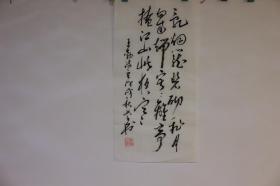 乱烟笼碧砌飞月
向南端寂寞離亭
掩江山此夜寒
王勃诗